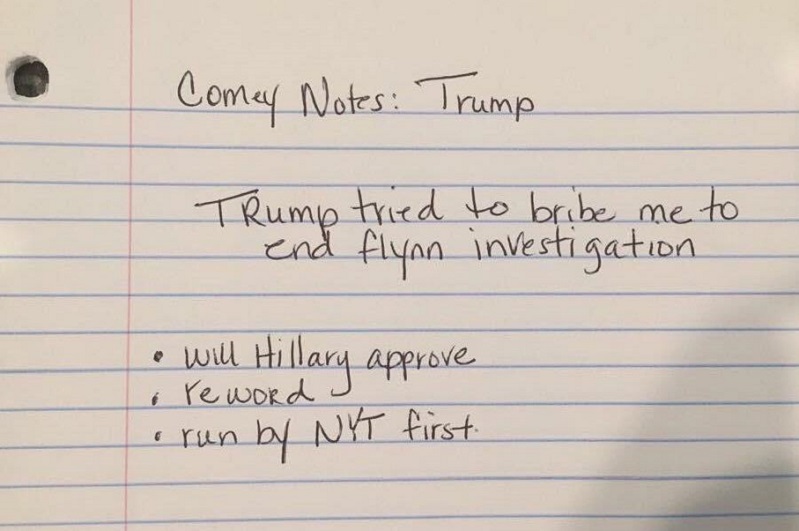 Comey Notes: Trump
TRump tried to bribe me to
end flynn investigation
• will Hillary approve
• reword
• run by NYT first.